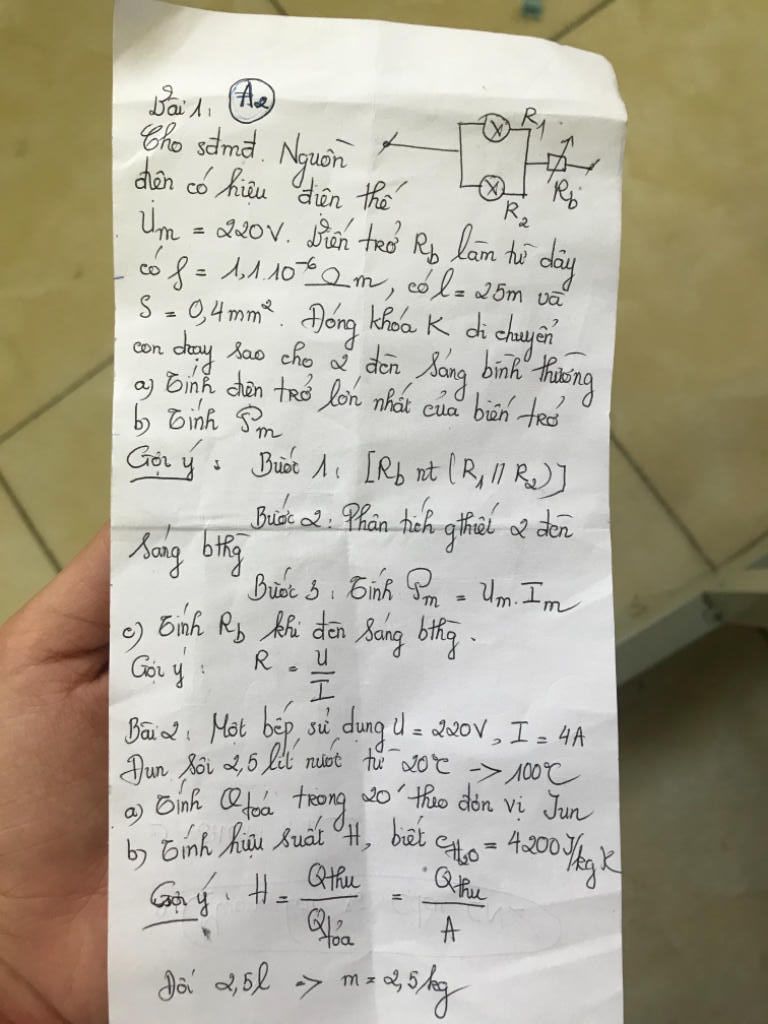 Bài 1: A2
Cho sđmđ. Nguồn
điện có hiệu điện thế
R1
R2
Rb
Um = 220V. Biến trở Rb làm từ dây
có ρ = 1,1.10⁻⁶ Ωm, có l = 25m và
S = 0,4mm². Đóng khóa K di chuyển
con chạy sao cho 2 đèn sáng bình thường
a) Tính điện trở lớn nhất của biến trở
b) Tính Pm
Gợi ý: Bước 1: [Rb nt (R1 // R2)]
Bước 2: Phân tích gthiết 2 đèn
sáng bthg
Bước 3: Tính Pm = Um.Im
c) Tính Rb khi đèn sáng bthg.
Gợi ý: R = U/I
Bài 2: Một bếp sử dụng U = 220V, I = 4A
Đun sôi 2,5 lít nước từ 20°C -> 100°C
a) Tính Qtoả trong 20' theo đơn vị Jun
b) Tính hiệu suất H, biết cH2O = 4200J/kg K
Gợi ý: H = Qthu/Qtỏa = Qthu/A
Đổi 2,5l => m = 2,5kg